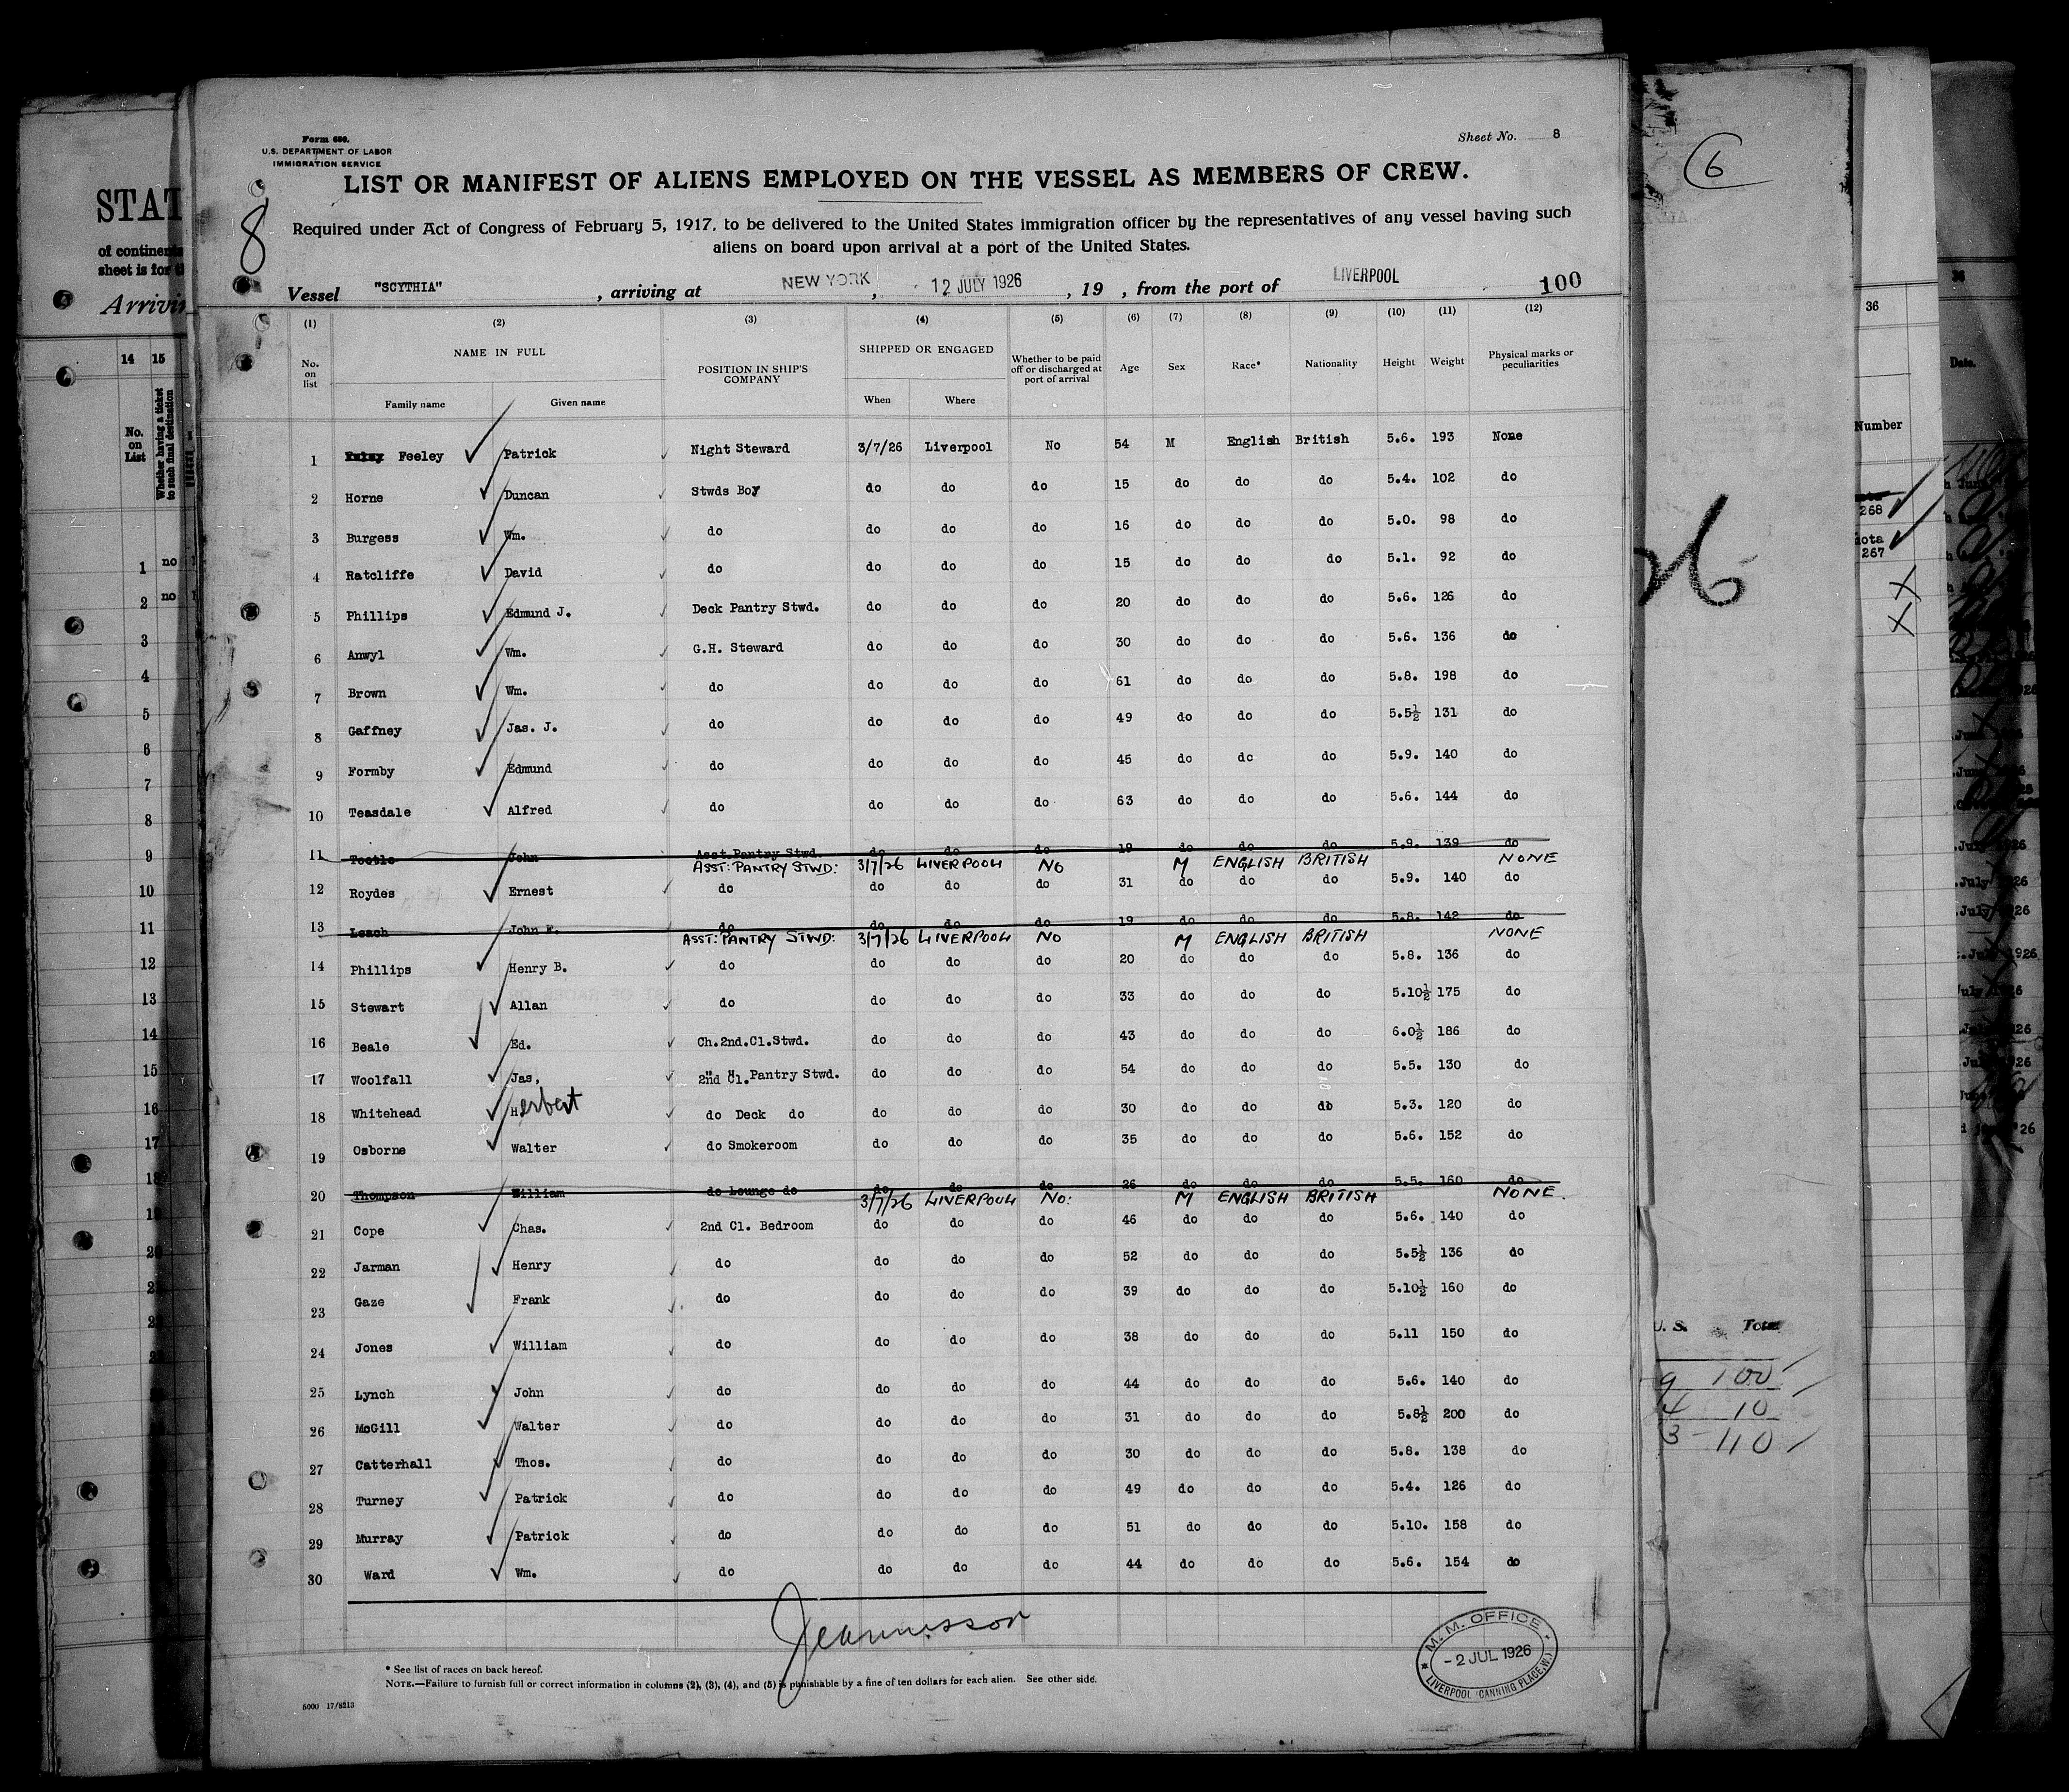 Form 680.
U.S. DEPARTMENT OF LABOR
IMMIGRATION SERVICE
Sheet No. 8
8
LIST OR MANIFEST OF ALIENS EMPLOYED ON THE VESSEL AS MEMBERS OF CREW.
Required under Act of Congress of February 5, 1917, to be delivered to the United States immigration officer by the representatives of any vessel having such
aliens on board upon arrival at a port of the United States.
Vessel "SCYTHIA", arriving at NEW YORK, 12 JULY 1926, 19 , from the port of LIVERPOOL 100
(1) (2) (3) (4) (5) (6) (7) (8) (9) (10) (11) (12)
No. on list NAME IN FULL Family name Given name POSITION IN SHIP'S COMPANY SHIPPED OR ENGAGED When Where Whether to be paid off or discharged at port of arrival Age Sex Race* Nationality Height Weight Physical marks or peculiarities
1 Feeley Patrick Night Steward 3/7/26 Liverpool No 54 M English British 5.6. 193 None
2 Horne Duncan Stwds Boy do do do 15 do do do 5.4. 102 do
3 Burgess Wm. do do do do 16 do do do 5.0. 98 do
4 Ratcliffe David do do do do 15 do do do 5.1. 92 do
5 Phillips Edmund J. Deck Pantry Stwd. do do do 20 do do do 5.6. 126 do
6 Anwyl Wm. G.H. Steward do do do 30 do do do 5.6. 136 do
7 Brown Wm. do do do do 61 do do do 5.8. 198 do
8 Gaffney Jas. J. do do do do 49 do do do 5.5½ 131 do
9 Formby Edmund do do do do 45 do do do 5.9. 140 do
10 Teasdale Alfred do do do do 63 do do do 5.6. 144 do
11 Tootle John Asst Pantry Stwd. do do do 19 do do do 5.9. 139 do
ASST: PANTRY STWD: 3/7/26 LIVERPOOL NO M ENGLISH BRITISH NONE
12 Roydes Ernest do do do do 31 do do do 5.9. 140 do
13 Leach John F. do do do do 19 do do do 5.8. 142 do
ASST: PANTRY STWD: 3/7/26 LIVERPOOL NO M ENGLISH BRITISH NONE
14 Phillips Henry B. do do do do 20 do do do 5.8. 136 do
15 Stewart Allan do do do do 33 do do do 5.10½ 175 do
16 Beale Ed. Ch.2nd.Cl.Stwd. do do do 43 do do do 6.0½ 186 do
17 Woolfall Jas, 2nd Cl. Pantry Stwd. do do do 54 do do do 5.5. 130 do
18 Whitehead Herbert do Deck do do do do 30 do do do 5.3. 120 do
19 Osborne Walter do Smokeroom do do do 35 do do do 5.6. 152 do
20 Thompson William do Lounge do do do do 26 do do do 5.5. 160 do
3/7/26 LIVERPOOL NO: M ENGLISH BRITISH NONE.
21 Cope Chas. 2nd Cl. Bedroom do do do 46 do do do 5.6. 140 do
22 Jarman Henry do do do do 52 do do do 5.5½ 136 do
23 Gaze Frank do do do do 39 do do do 5.10½ 160 do
24 Jones William do do do do 38 do do do 5.11 150 do
25 Lynch John do do do do 44 do do do 5.6. 140 do
26 McGill Walter do do do do 31 do do do 5.8½ 200 do
27 Catterhall Thos. do do do do 30 do do do 5.8. 138 do
28 Turney Patrick do do do do 49 do do do 5.4. 126 do
29 Murray Patrick do do do do 51 do do do 5.10. 158 do
30 Ward Wm. do do do do 44 do do do 5.6. 154 do
M. M. OFFICE
-2 JUL 1926
LIVERPOOL (CANNING PLACE, W.)
* See list of races on back hereof.
NOTE.—Failure to furnish full or correct information in columns (2), (3), (4), and (5) is punishable by a fine of ten dollars for each alien. See other side.
5000 17/8213
STAT
of continen
sheet is for
Arrivin
14 15
No. on List
Whether having a ticket to such final destination
1 no
2 no
3
4
5
6
7
8
9
10
11
12
13
14
15
16
17
18
19
6
26
U. S. Total
9 100
4 10
3 110
36
Number
268
267
Date.